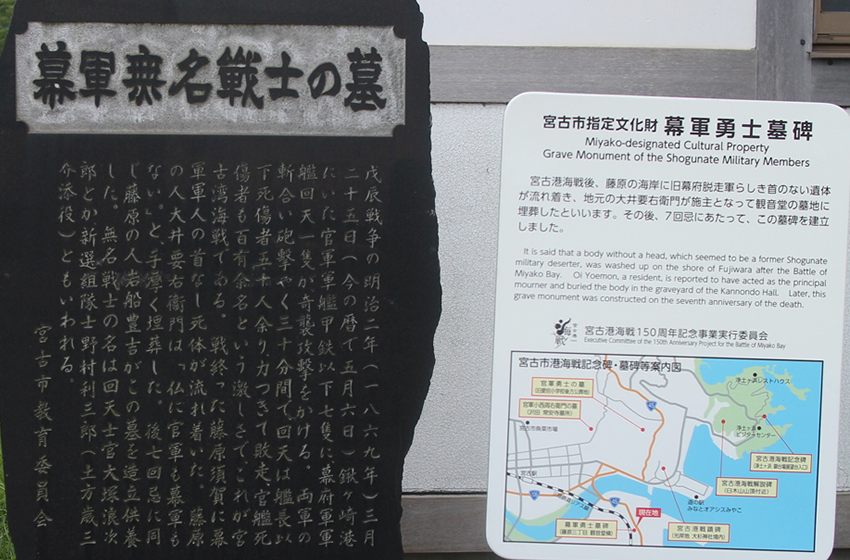 幕軍無名戦士の墓
戊辰戦争の明治二年(一八六九年)三月
二十五日(今の暦で五月六日)鍬ヶ崎港
にいた官軍軍艦甲鉄以下七隻に幕府軍軍
艦回天一隻が奇襲攻撃をかける 両軍の
斬合い砲撃やく三十分間で回天は艦長以
下死傷者五十人余り力つきて敗走 官艦死
傷者も百有余名という激しさでこれが宮
古湾海戦である。 戦終った藤原須賀に幕
軍軍人の首なし死体が流れ着いた 藤原
の人大井要右衛門は 仏に官軍も幕軍も
ない。と 手厚く埋葬した。 後七回忌に同
じ藤原の人岩船豊吉がこの墓を造立供養
した。 無名戦士の名は回天士官大塚浪次
郎とか新選組隊士野村利三郎(土方歳三
介添役)ともいわれる。
宮古市教育委員会
宮古市指定文化財 幕軍勇士墓碑
Miyako-designated Cultural Property
Grave Monument of the Shogunate Military Members
宮古港海戦後、藤原の海岸に旧幕府脱走軍らしき首のない遺体
が流れ着き、地元の大井要右衛門が施主となって観音堂の墓地に
埋葬したといいます。その後、7回忌にあたって、この墓碑を建立
しました。
It is said that a body without a head, which seemed to be a former Shogunate
military deserter, was washed up on the shore of Fujiwara after the Battle of
Miyako Bay. Oi Yoemon, a resident, is reported to have acted as the principal
mourner and buried the body in the graveyard of the Kannondo Hall. Later, this
grave monument was constructed on the seventh anniversary of the death.
宮古港海戦150周年記念事業実行委員会
Executive Committee of the 150th Anniversary Project for the Battle of Miyako Bay
宮古市港海戦記念碑・墓碑等案内図
浄土ヶ浜レストハウス
官軍勇士の墓
官軍小西周右衛門の墓
(沢田 常安寺墓所)
宮古市魚菜市場
浄土ヶ浜
ビジターセンター
宮古港海戦記念碑
(浄土ヶ浜 御台場展望台入口)
宮古港海戦解説碑
(臼木山山頂付近)
宮古駅
道の駅
みなとオアシスみやこ
現在地
幕軍勇士墓碑
(藤原三丁目 観音堂横)
宮古港戦蹟碑
(光岸地 大杉神社境内)